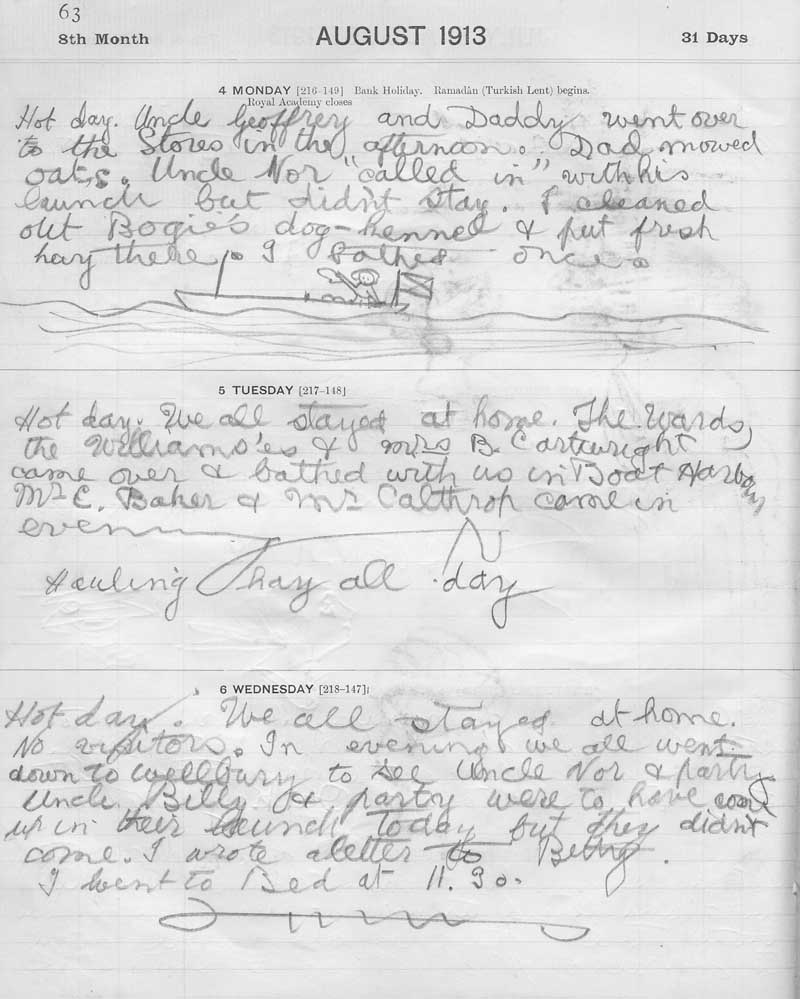 63
8th Month
AUGUST 1913
31 Days
4 MONDAY [216-149] Bank Holiday. Ramadân (Turkish Lent) begins.
Royal Academy closes
Hot day. Uncle Geoffrey and Daddy went over
to the Stores in the afternoon. Dad mowed
oats. Uncle Nor "called in" with his
launch but didn't stay. I cleaned
out Bogie's dog-kennel & put fresh
hay there. I bathed once.
5 TUESDAY [217-148]
Hot day. We all stayed at home. The Wards,
the Williams'es & Mrs B. Cartwright
came over & bathed with us in Boat Harbour
Mr C. Baker & Mr Calthrop came in
evening
Hauling hay all day
6 WEDNESDAY [218-147]
Hot day. We all stayed at home.
No visitors. In evening we all went
down to Wellbury to see Uncle Nor & party
Uncle Billy & party were to have come
up in their launch today but they didn't
come. I wrote a letter to
I went to Bed at 11.30.